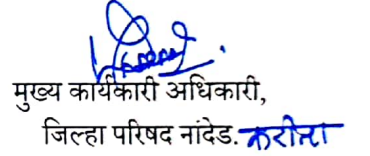 मुख्य कार्यकारी अधिकारी,
जिल्हा परिषद नांदेड. करीता